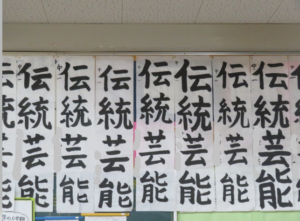 伝統芸能
伝統芸能
伝統芸能
伝統芸能
伝統芸能
伝統芸能
伝統芸能
伝統芸能